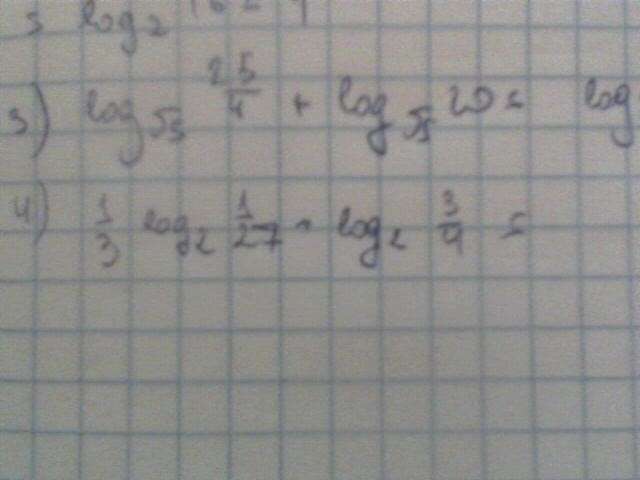 log₂ 16 = 4
3) log_√5 25/4 + log_√5 20 = log
4) 1/3 log₂ 1/27 - log₂ 3/4 =